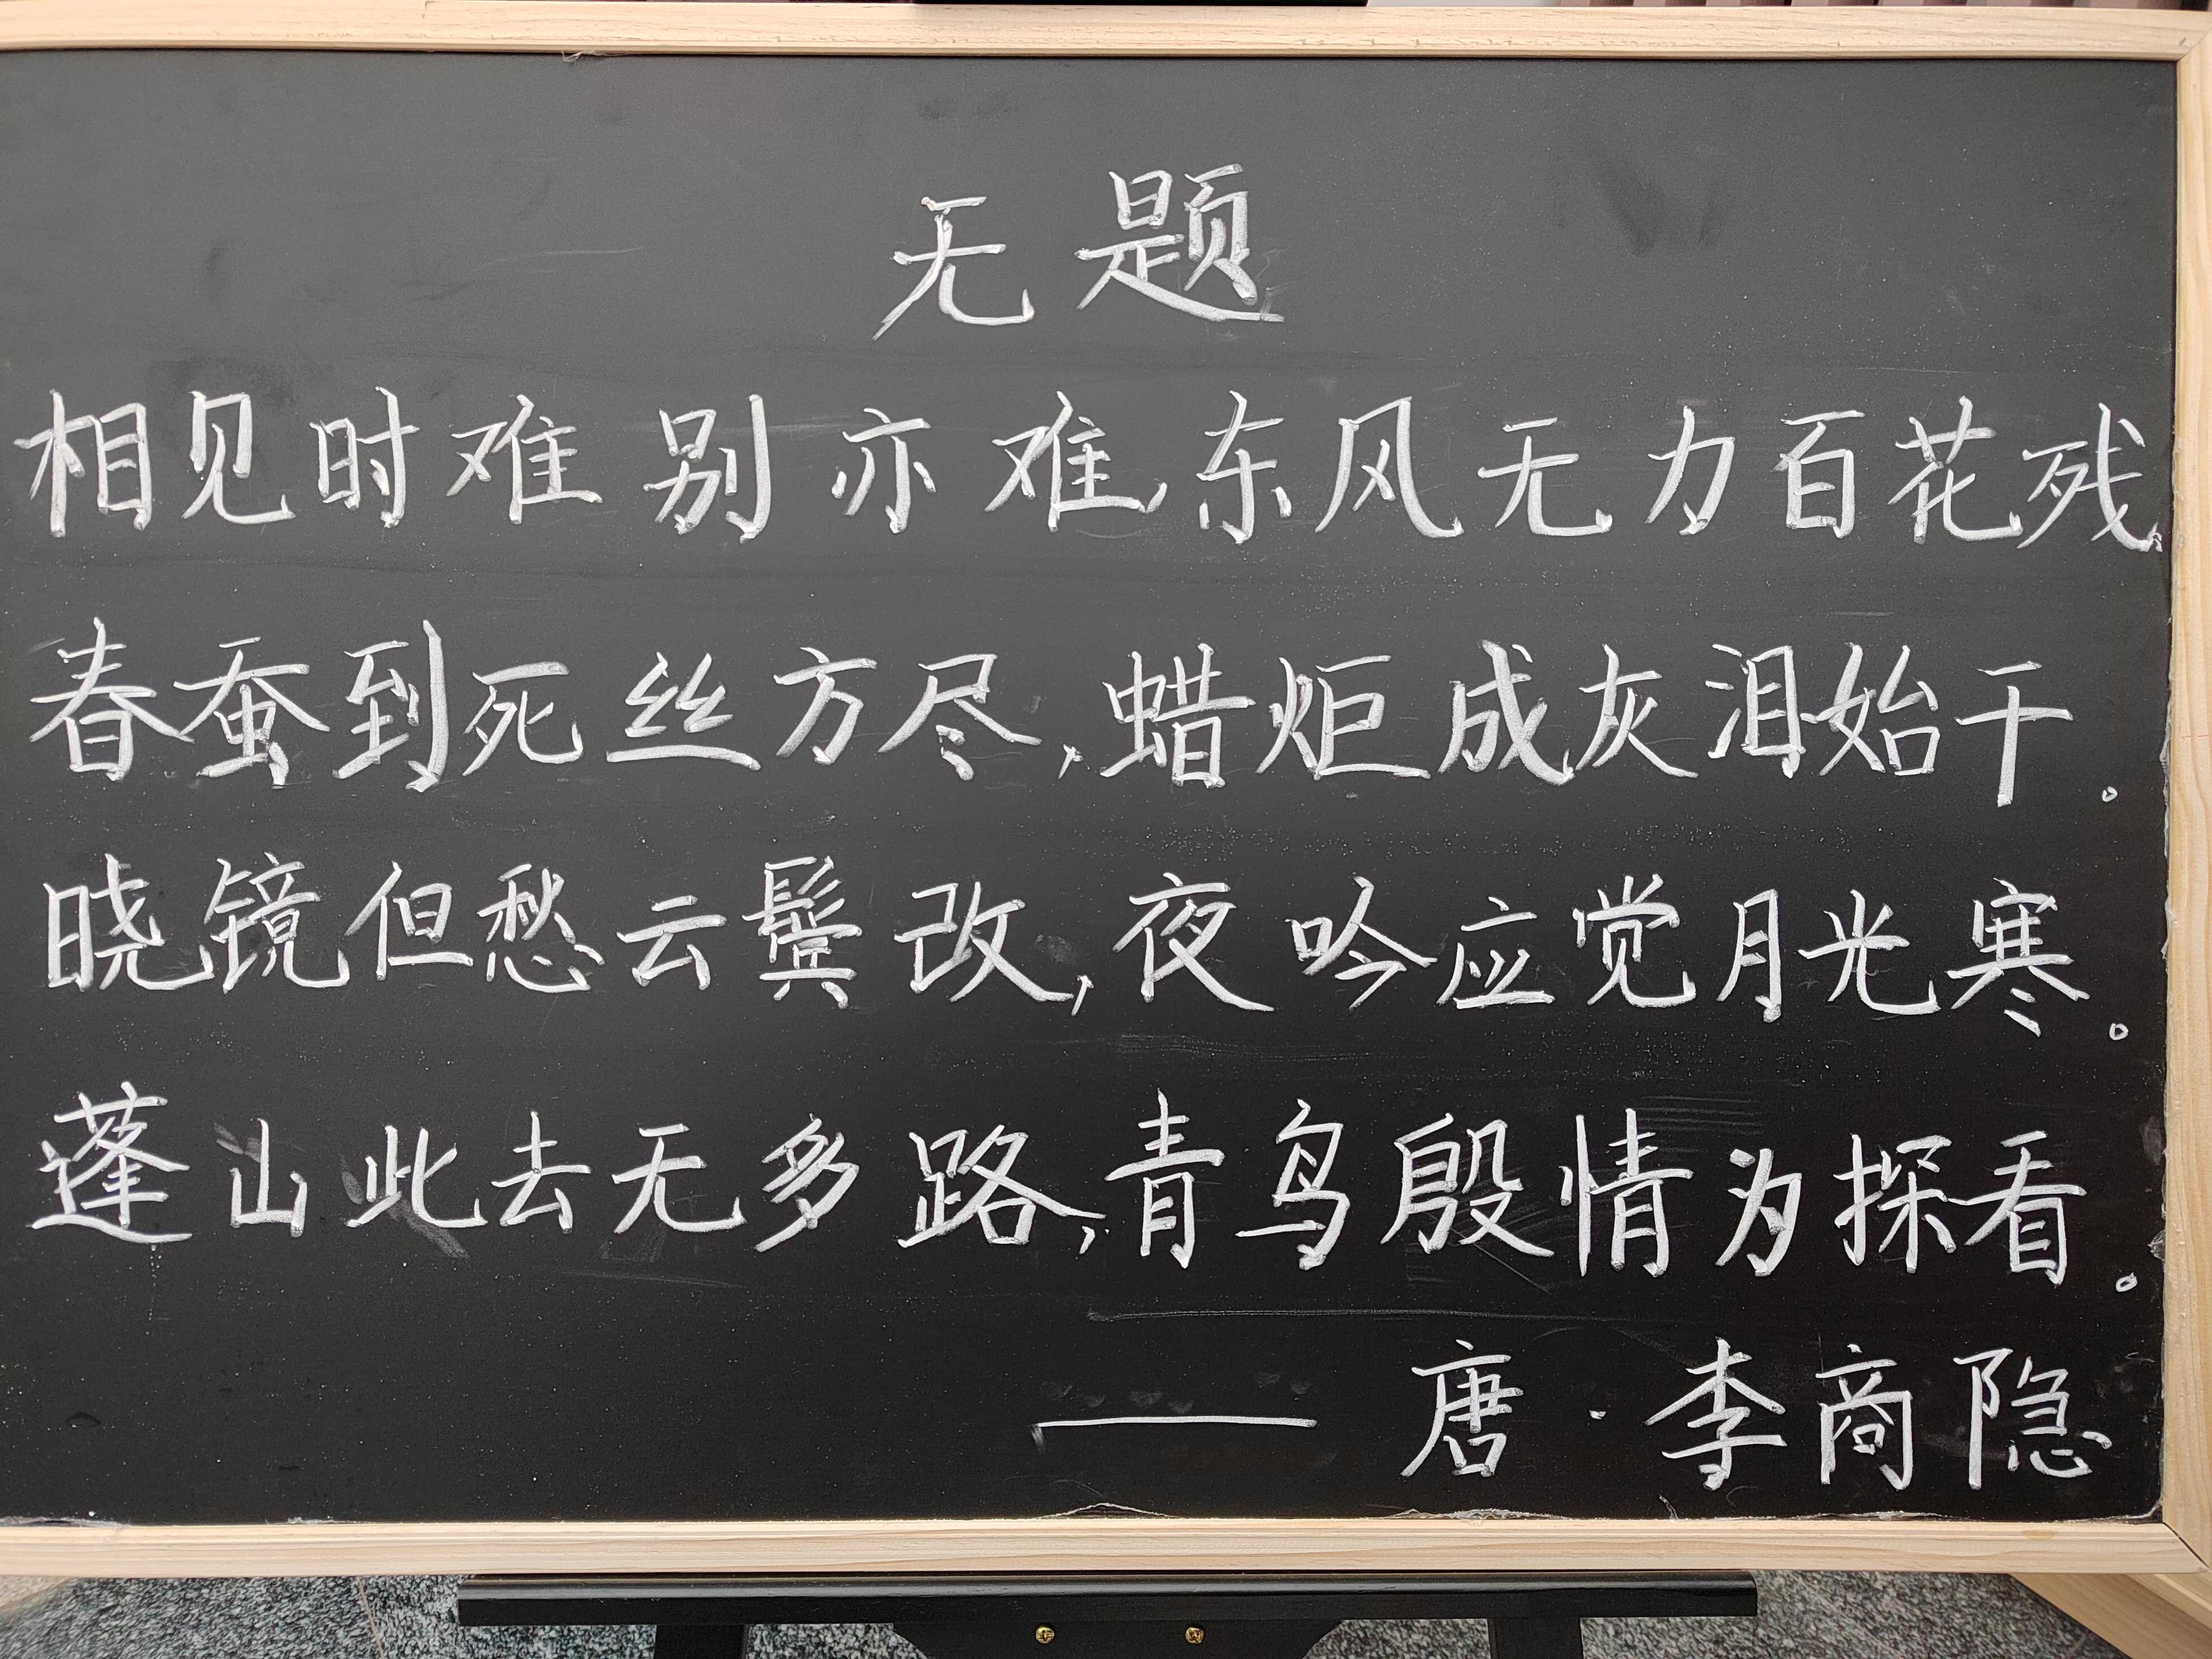 无题
相见时难别亦难,东风无力百花残。
春蚕到死丝方尽,蜡炬成灰泪始干。
晓镜但愁云鬓改,夜吟应觉月光寒。
蓬山此去无多路,青鸟殷情为探看。
—— 唐·李商隐